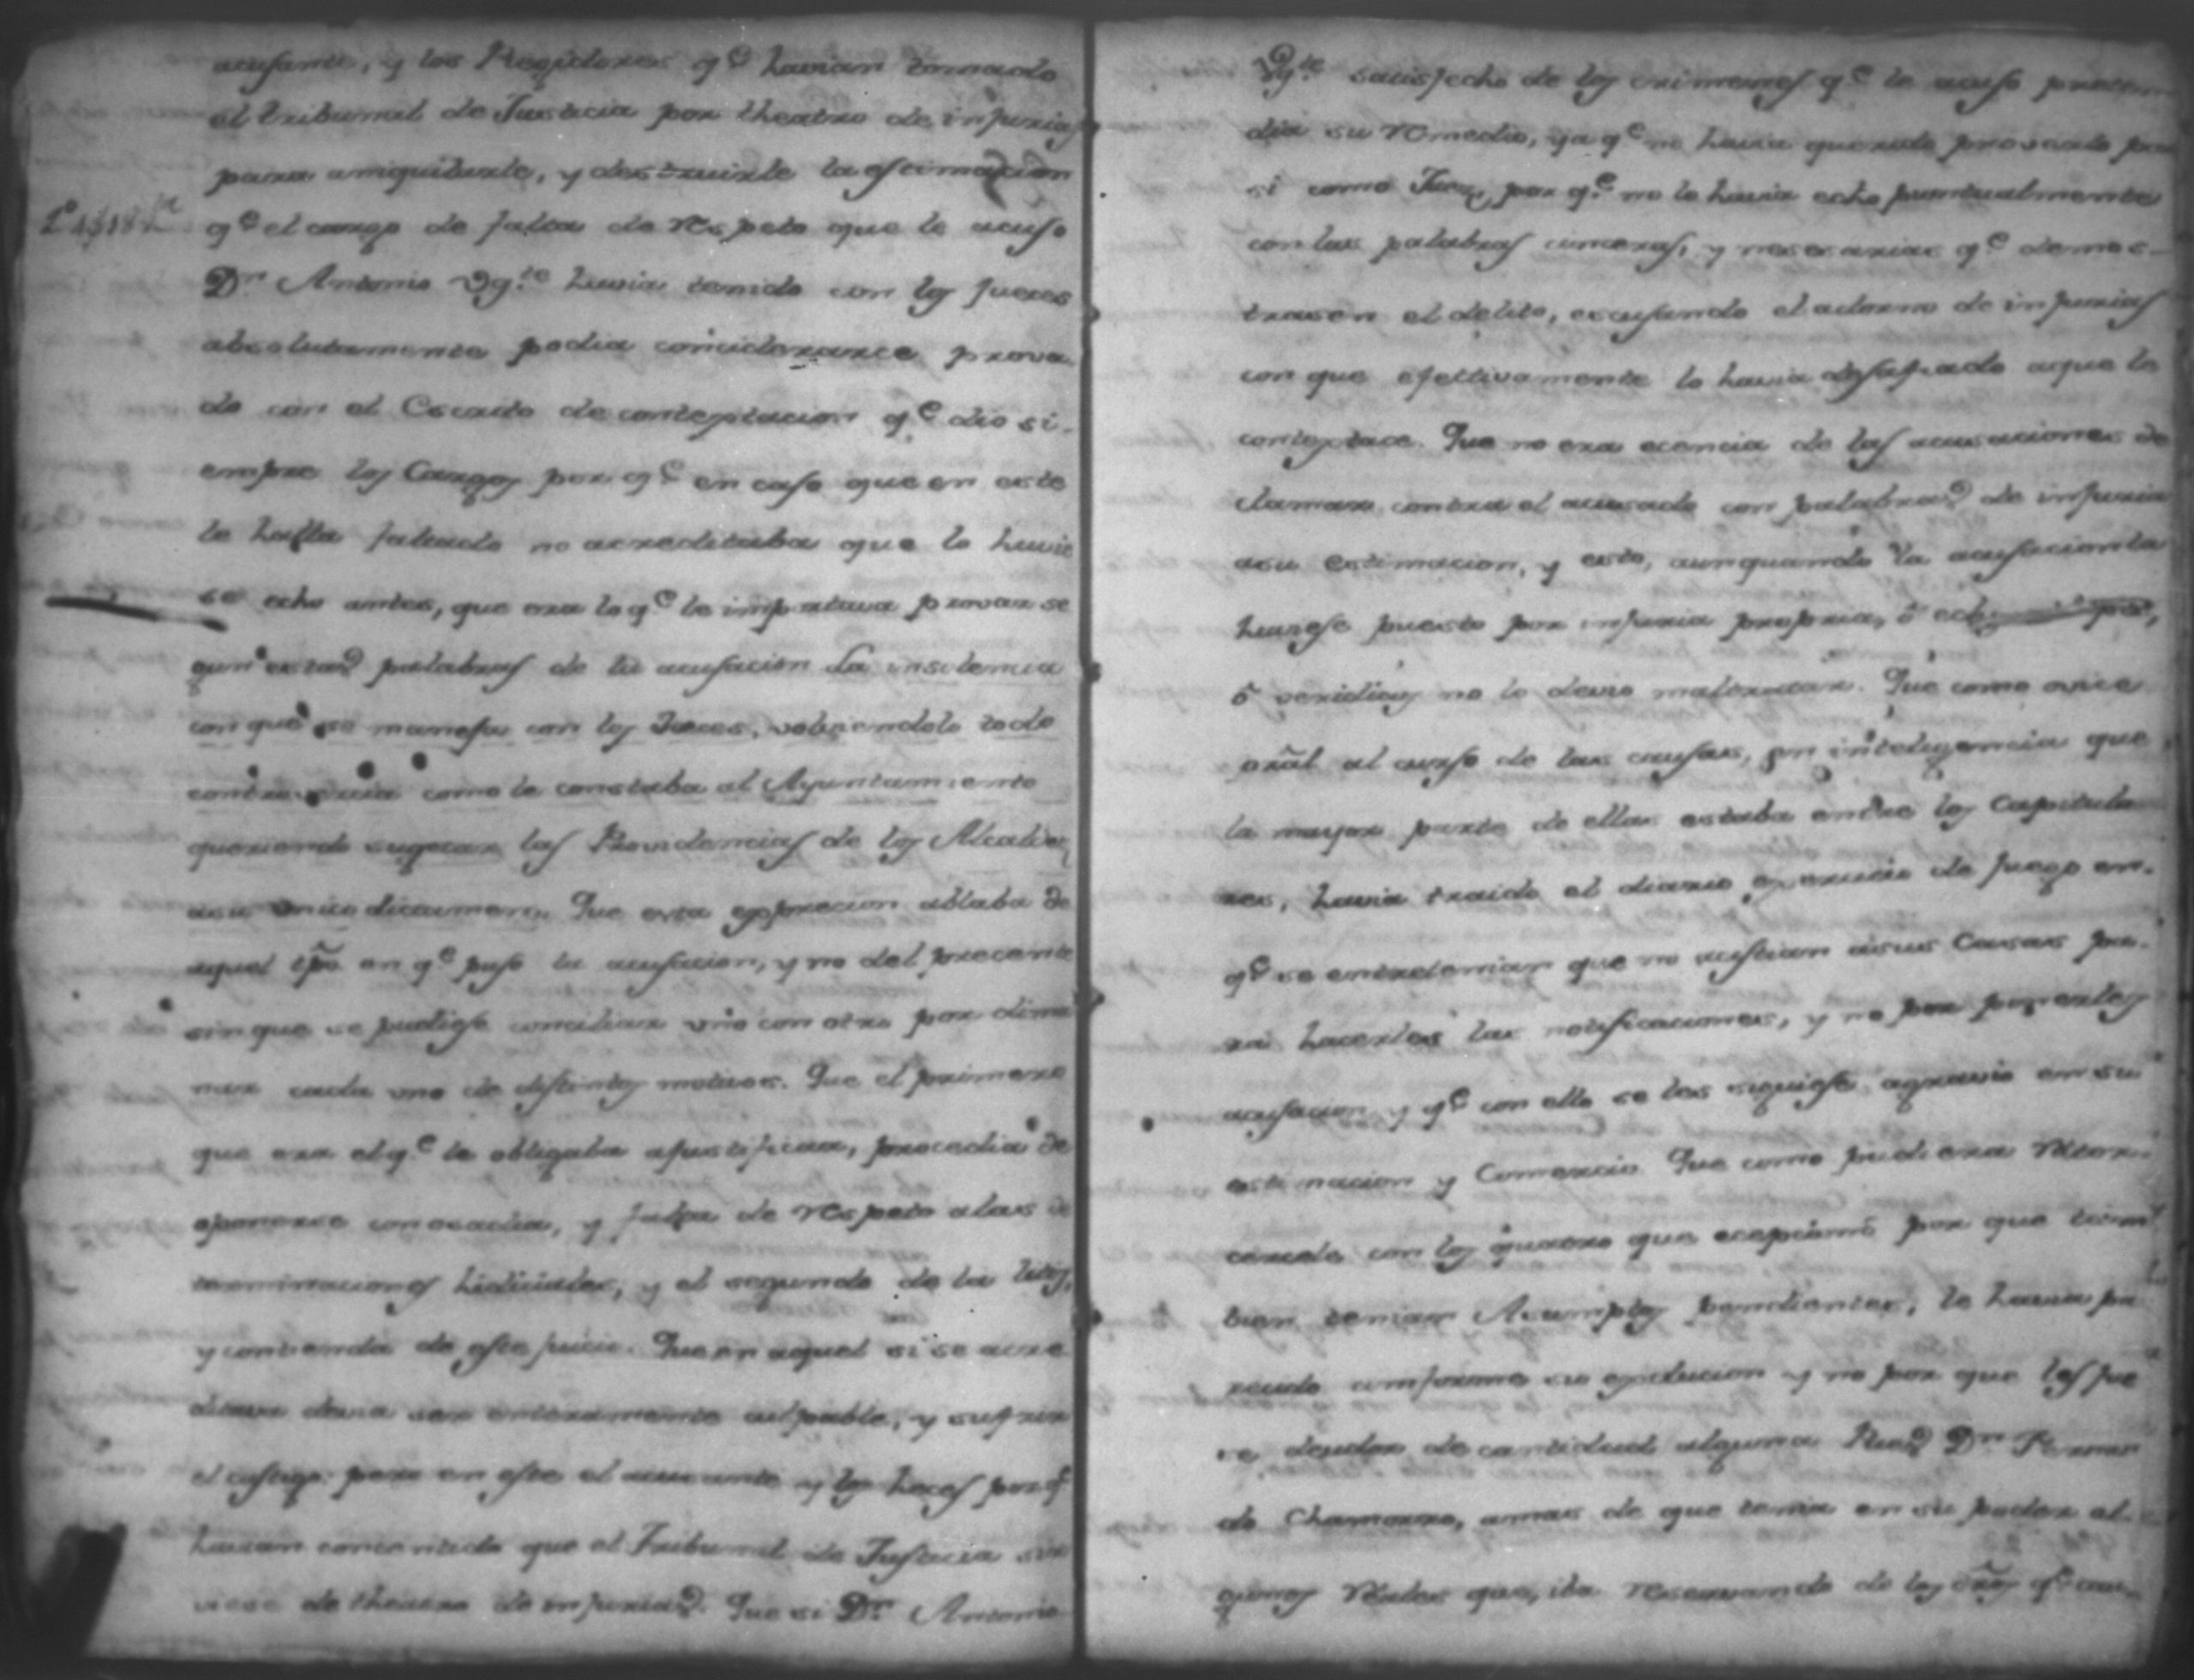 acusante, y los Regidores qe havian tomado
el tribunal de Justicia por theatro de injurias
para aniquilarle, y destruirle la estimacion
qe el cargo de falta de respeto que le acuso
Dn Antonio Ugte havia tenido con los Jueces
absolutamente podia conciderarce prova
do con el Escrito de contestacion qe dio si
empre los Cargos por qe en caso que en este
le hu faltado no acreditaba que lo huvie
se echo antes, que era lo qe le importava provar se
gun estas palabras de la acusacion La insolencia
con que se maneja con los Jueces, volviendolo todo
como le constaba al Ayuntamiento
queriendo sugetar las Providencias de los Alcaldes
asu unico dictamen. Que esta exprecion ablaba de
aquel tpo en qe puso la acusacion, y no del precente
sin que se pudiese conciliar uno con otro por dima
nar cada uno de distintos motivos. Que el primero
que era el qe le obligaba ajustificar, procedia de
oponerse con osadia, y falta de respeto alas de
terminaciones Judiciales, y el segundo de la
y contienda de este juicio. Que en aquel si se acre
ditava devia ser enteramente culpable, y sufrir
el castigo pero en este el acusante y los Jueces porq
havian concentido que el Tribunal de Justicia sir
viese de theatro de injurias. Que si Dn Antonio
Ugte satisfecho de los crimenes qe le acuso preten
dia su remedio, ya qe no havia querido provarlo por
si como Juez, por qe no lo havia echo puntualmente
con las palabras sinceras, y nesesarias qe demos
trasen el delito, escusando el adorno de injurias
con que efectivamente lo havia desafiado aque le
contestace. Que no era ecencia de las acusaciones de
clamar contra el acusado con palabras de injuria
asu estimacion, y esto, aunquando la acusacion la
huviese puesto por injuria propria, ó
ó veridicos no lo devio maltratar. Que como
al curso de las causas, en inteligencia que
la mayor parte de ellas estaba entre los Capitula
res, havia traido el diario exercicio de juego en
qe se entretenian que no asistian asus Casas pa
ra hacerles las notificaciones, y no por ponerles
acusacion y qe con ello se les siguiese agravio en su
estimacion y Comercio Que como pudiera
con los quatro que porque tam
bien tenian Asumptos pendientes, le havia pa
recido conforme su y no por que les fue
se deudor de cantidad alguna Dn Fernan
do Chamorro, amas de que tenia en su poder al
gunos reales que, iba reservando de los